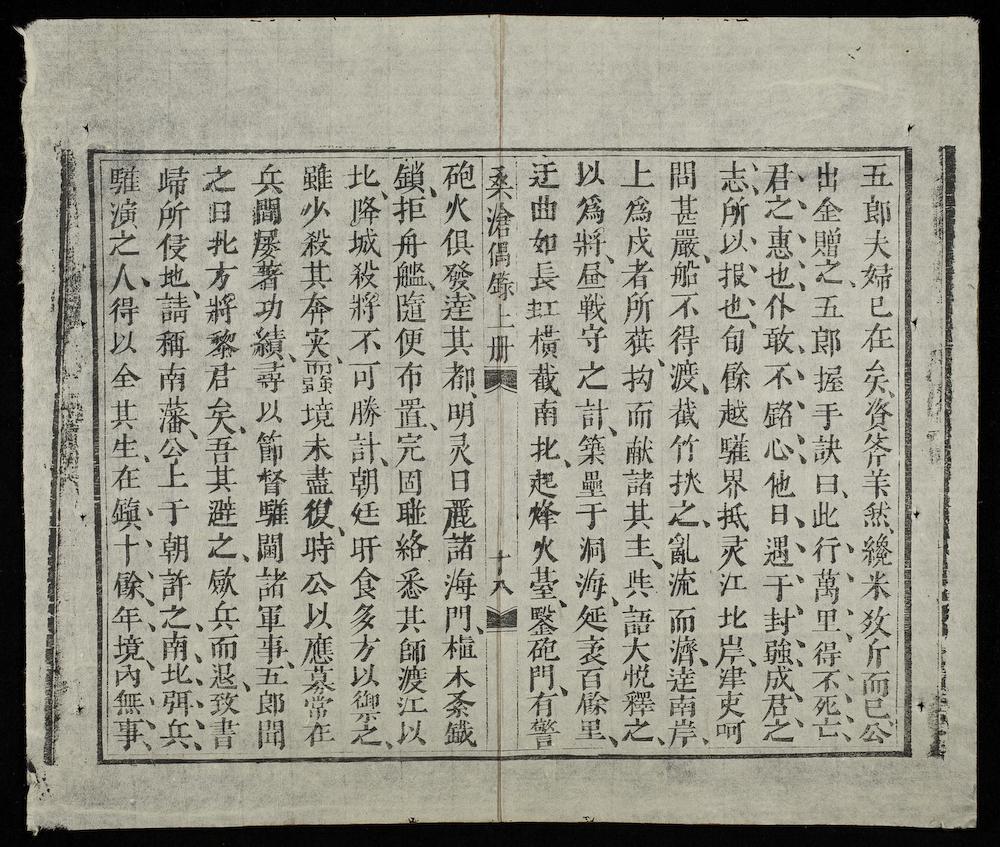 五郎夫婦已在矣資斧羊然纔米敉斤而已公
出金贈之五郎握手訣曰此行萬里得不死亡
君之惠也仆敢不銘心他日遇于封強成君之
志所以报也旬餘越驩界抵灵江北岸津吏呵
問甚嚴船不得渡截竹挾之亂流而濟逹南岸
上爲戍者所獲拘而献諸其主與語大悦釋之
以爲將昼戦守之計築壘于洞海延袤百餘里
迂曲如長虹橫截南北起烽火臺鑿砲門有警
桑滄偶錄上册 十八
砲火俱發逹其都明灵日麗諸海門植木紊鐡
鎖拒舟艦隨便布置完固聯絡悉其師渡江以
北降城殺將不可勝計朝廷旰食多方以御之
雖少殺其奔突而强境未盡復時公以應募常在
兵間屡著功績尋以節督驩閫諸軍事五郎聞
之曰北方將黎君矣吾其避之歛兵而退致書
歸所侵地請稱南藩公上于朝許之南北弭兵
驩演之人得以全其生在鎮十餘年境內無事